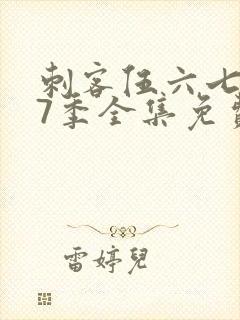 刺客伍六七
7季全集免费
雷婷儿